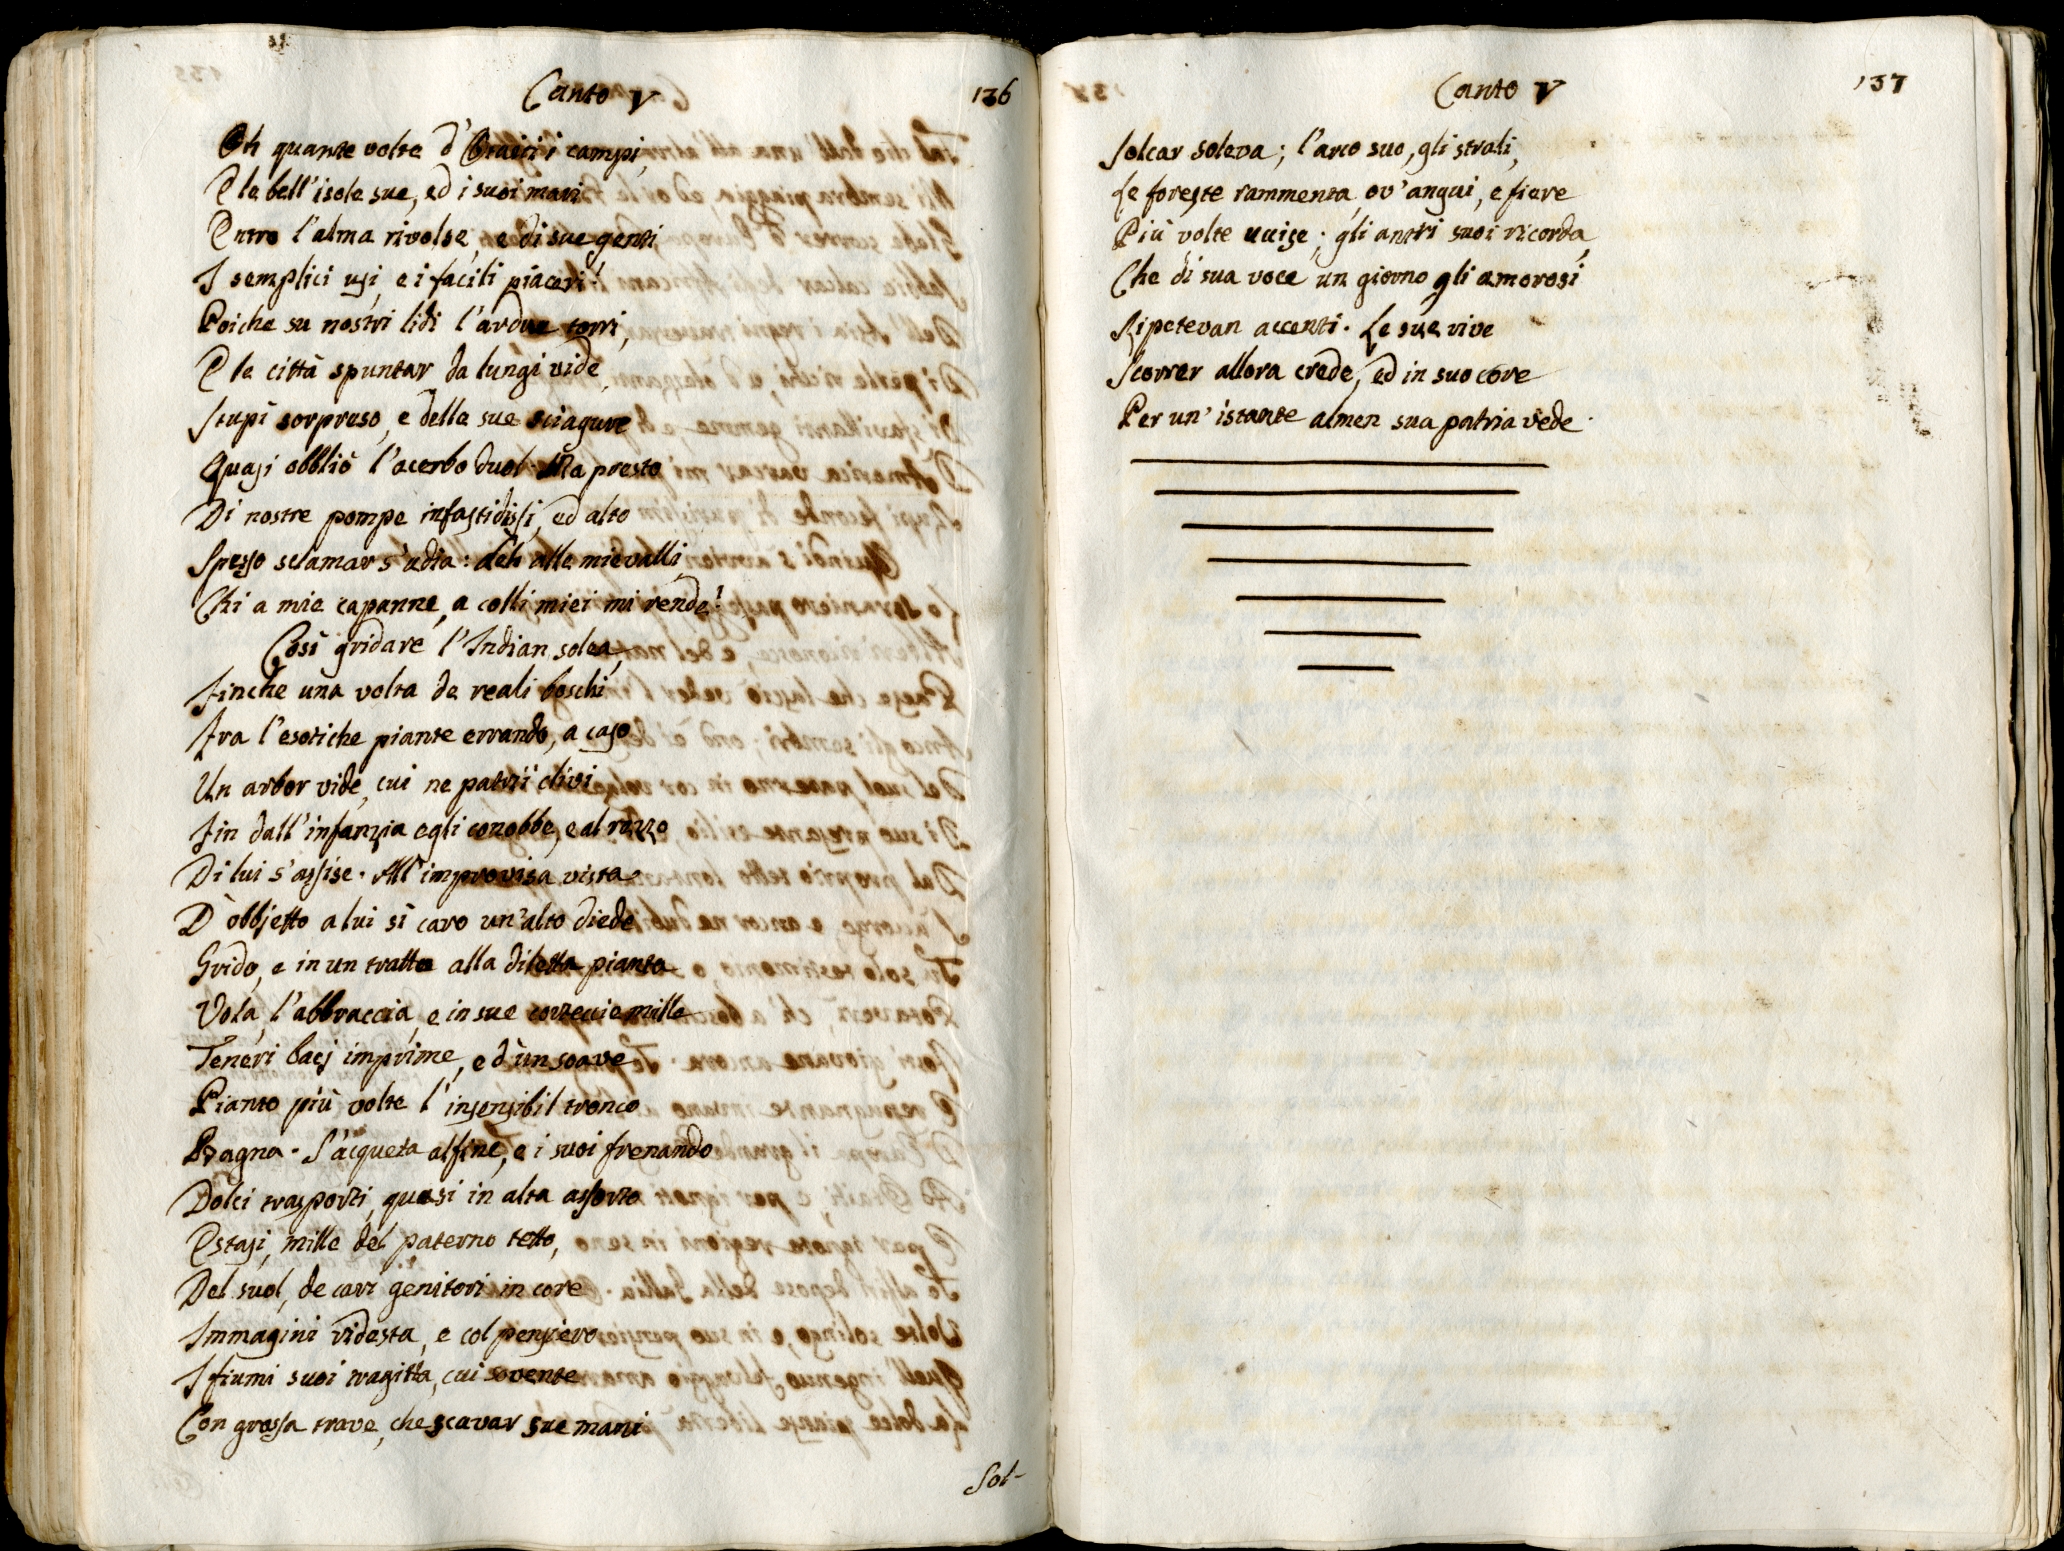 Canto V
136
Oh quante volte d'Otaiti i campi,
E le bell'isole sue, ed i suoi mari
Entro l'alma rivolse, e di sue genti
I semplici usi, e i facili piaceri!
Poiche su nostri lidi l'ardue torri,
E le città spuntar da lungi vide,
Stupì sorpreso, e delle sue sciagure
Quasi obbliò l'acerbo duol. Ma presto
Di nostre pompe infastidissi, ed alto
Spesso sclamar s'udìa: deh alle mie valli,
Chi a mie capanne, a colli miei mi rende!
Così gridare l'Indian solea,
Finche una volta de reali boschi
Fra l'esotiche piante errando, a caso
Un arbor vide, cui ne patrii clivi
Fin dall'infanzia egli conobbe, e al rezzo
Di lui s'assise. All'improvisa vista
D'obbjetto a lui sì caro un'alto diede
Grido, e in un tratto alla diletta pianta
Vola, l'abbraccia, e in sue cortecie mille
Teneri bacj imprime, e d'un soave
Pianto più volte l'insensibil tronco
Bagna. S'acqueta alfine, e i suoi frenando
Dolci trasporti, quasi in alta assorto
Estasi, mille del paterno tetto,
Del suol, de cari genitori in core
Immagini ridesta, e col pensiero
I fiumi suoi tragitta, cui sovente
Con grossa trave, che scavar sue mani
Sol-
Canto V
137
Solcar soleva; l'arco suo, gli strali,
Le foreste rammenta, ov'angui, e fiere
Più volte uccise; gli antri suoi ricorda,
Che di sua voce un giorno gli amorosi
Ripetevan accenti. Le sue rive
Scorrer allora crede, ed in suo core
Per un'istante almen sua patria vede.